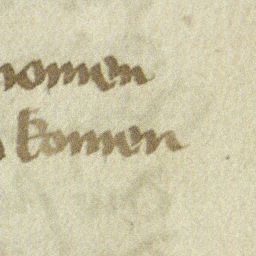 nomen
komen